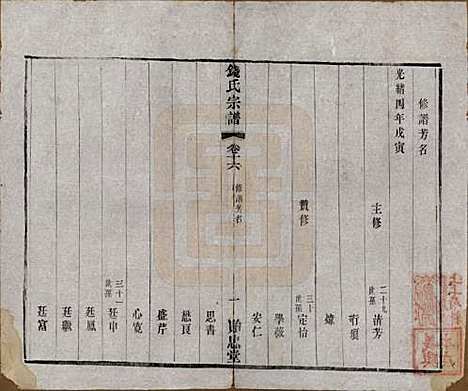 修譜芳名
光緒四年戊寅
主修
二十九世孫 清芳
有順
煒
贊修
三十世孫 定怡
學薇
安仁
錢氏宗譜 卷十六 修譜芳名 一 貽忠堂
思書
懋良
盛芹
心寬
三十一世孫 廷申
廷鳳
廷獻
廷富